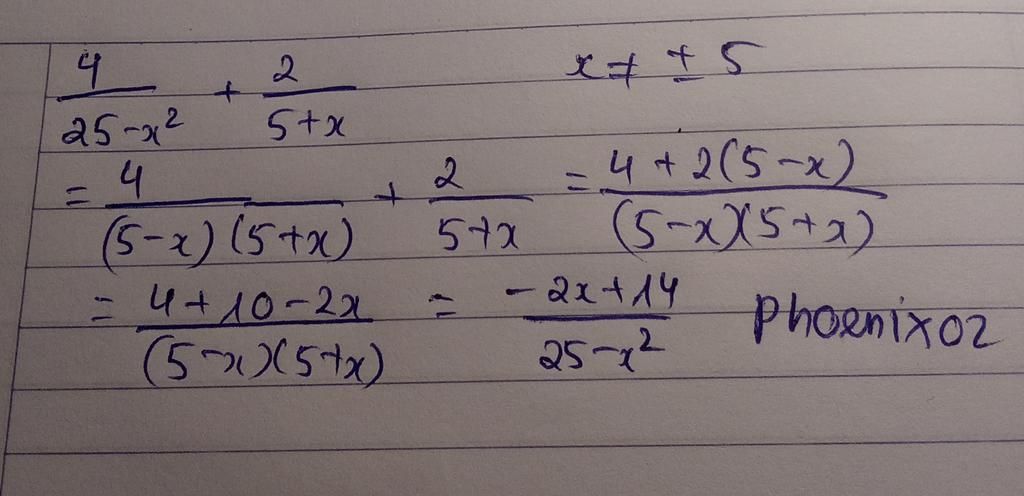 4/(25-x²) + 2/(5+x)    x ≠ ± 5
= 4/((5-x)(5+x)) + 2/(5+x) = (4+2(5-x))/((5-x)(5+x))
= (4+10-2x)/((5-x)(5+x)) = (-2x+14)/(25-x²)    Phoenix02